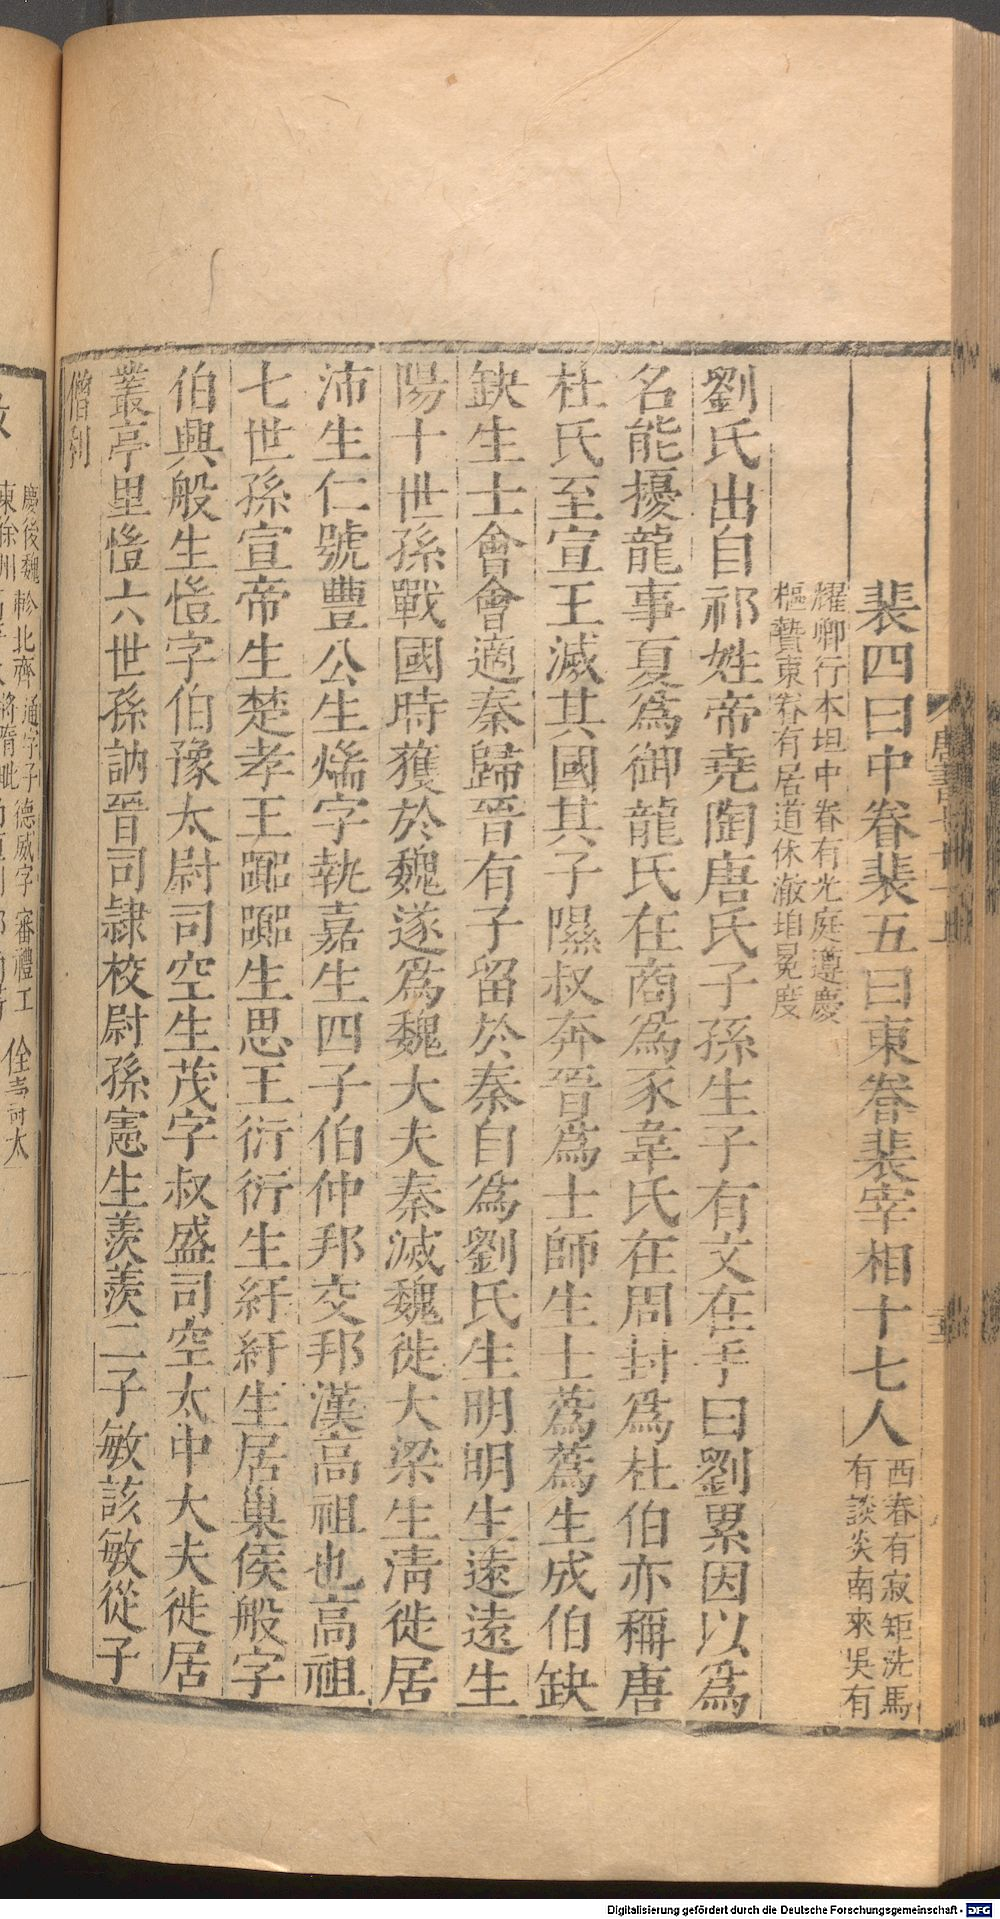 裴四曰中眷裴五曰東眷裴宰相十七人
西眷有寂矩洗馬
有談炎南來吳有
耀卿行本坦中眷有光庭遵慶
樞贄東眷有居道休澈垍冕度
劉氏出自祁姓帝堯陶唐氏子孫生子有文在手曰劉累因以為
名能擾龍事夏為御龍氏在商為豕韋氏在周封為杜伯亦稱唐
杜氏至宣王滅其國其子隰叔奔晉為士師生士蒍蒍生成伯缺
缺生士會會適秦歸晉有子留於秦自為劉氏生明明生遠遠生
陽十世孫戰國時獲於魏遂為魏大夫秦滅魏徙大梁生清徙居
沛生仁號豐公生煓字執嘉生四子伯仲邦交邦漢高祖也高祖
七世孫宣帝生楚孝王囂囂生思王衍衍生紆紆生居巢侯般字
伯興般生愷字伯豫太尉司空生茂字叔盛司空太中大夫徙居
叢亭里愷六世孫訥晉司隸校尉孫憲生羨羨二子敏該敏從子
僧利
慶後魏
東徐州
軫北齊
通字子
將隋毗
德威字
審禮工
Digitalisierung gefördert durch die Deutsche Forschungsgemeinschaft - DFG